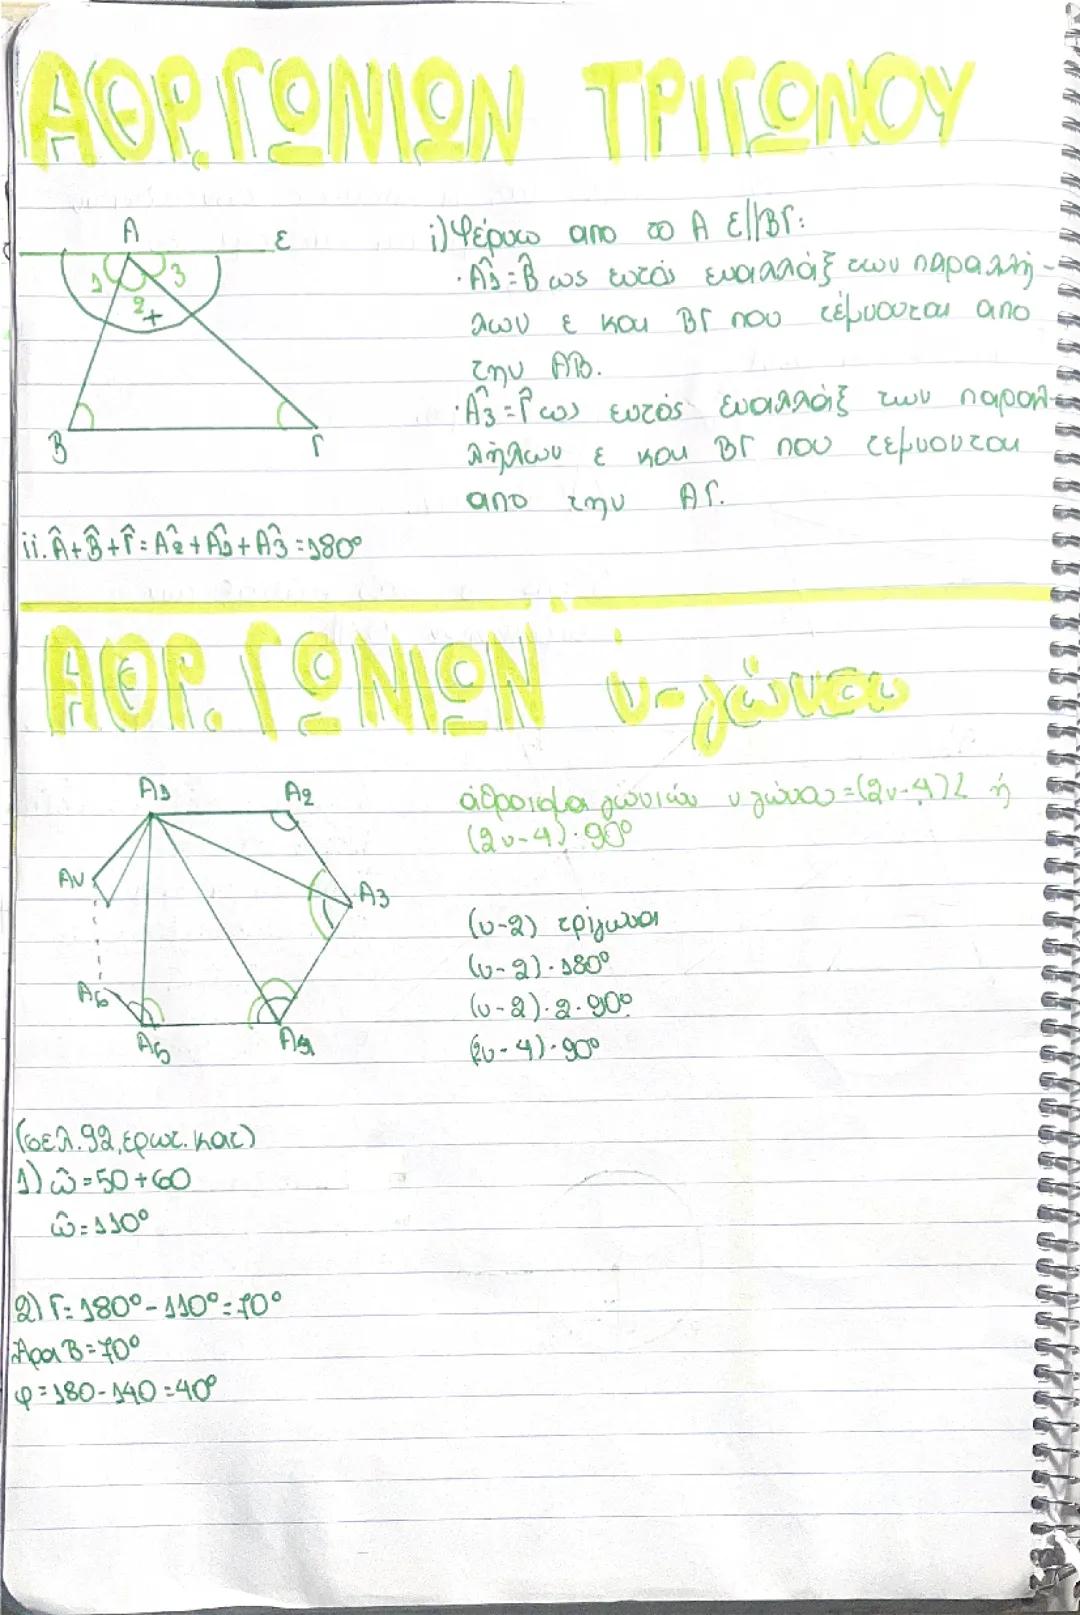 ΑΘΡ. ΓΩΝΙΩΝ ΤΡΙΓΩΝΟΥ
Α
ε
1
2
3
+
Β
Γ
i) Φέρνω απο το Α ε//ΒΓ:
· Α̂1 = Β̂ ως εντός εναλλάξ των παραλλή-
λων ε και ΒΓ που τέμνονται απο
την ΑΒ.
· Α̂3 = Γ̂ ως εντός εναλλάξ των παραλ-
λήλων ε και ΒΓ που τεμνονται
απο την ΑΓ.
ii. Α̂+Β̂+Γ̂ = Α̂2+Α̂1+Α̂3 = 180°
ΑΘΡ. ΓΩΝΙΩΝ ν-γώνου
Α1
Α2
Αν
Α3
Α6
Α5
Α4
άθροισμα γωνιών ν γώνου = (2ν-4)L ή
(2ν-4)·90°
(ν-2) τρίγωνα
(ν-2)·180°
(ν-2)·2·90°
(2ν-4)·90°
(σελ.92, ερωτ. κατ)
1) ω̂ = 50+60
ω̂ = 110°
2) Γ = 180° - 110° = 70°
Άρα Β = 70°
φ = 180 - 140 = 40°